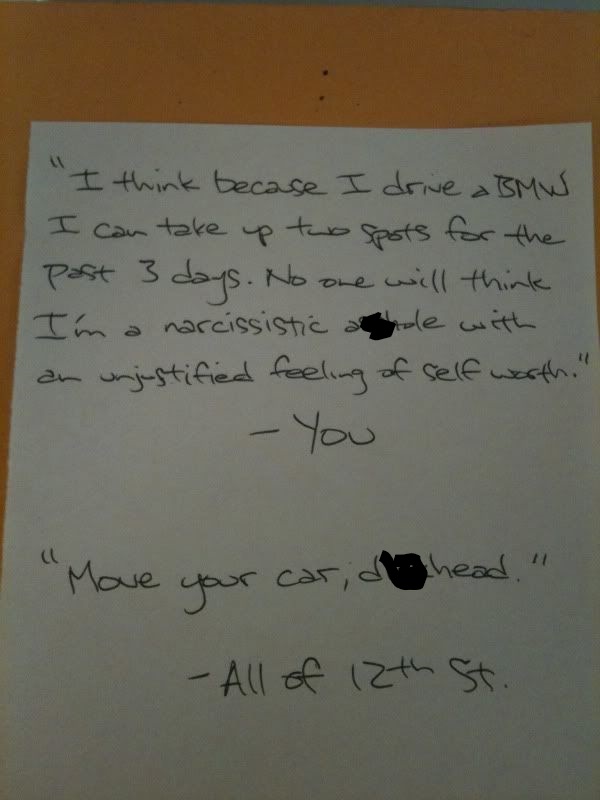 "I think becase I drive a BMW
I can take up two spots for the
past 3 days. No one will think
I'm a narcissistic a hole with
an unjustified feeling of self worth."
- You
"Move your car, d head."
- All of 12th St.